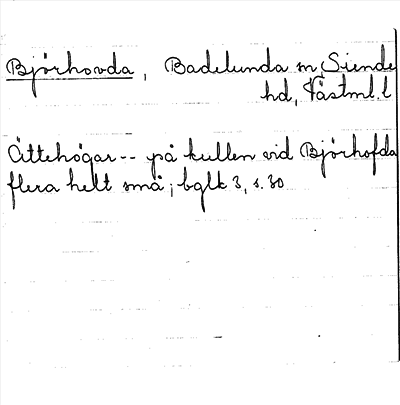 Björhovda, Badelunda sn, Siende
hd, Västml. l
Ättehögar -- på kullen vid Björhofda
flera helt små; bglk 3, s. 30